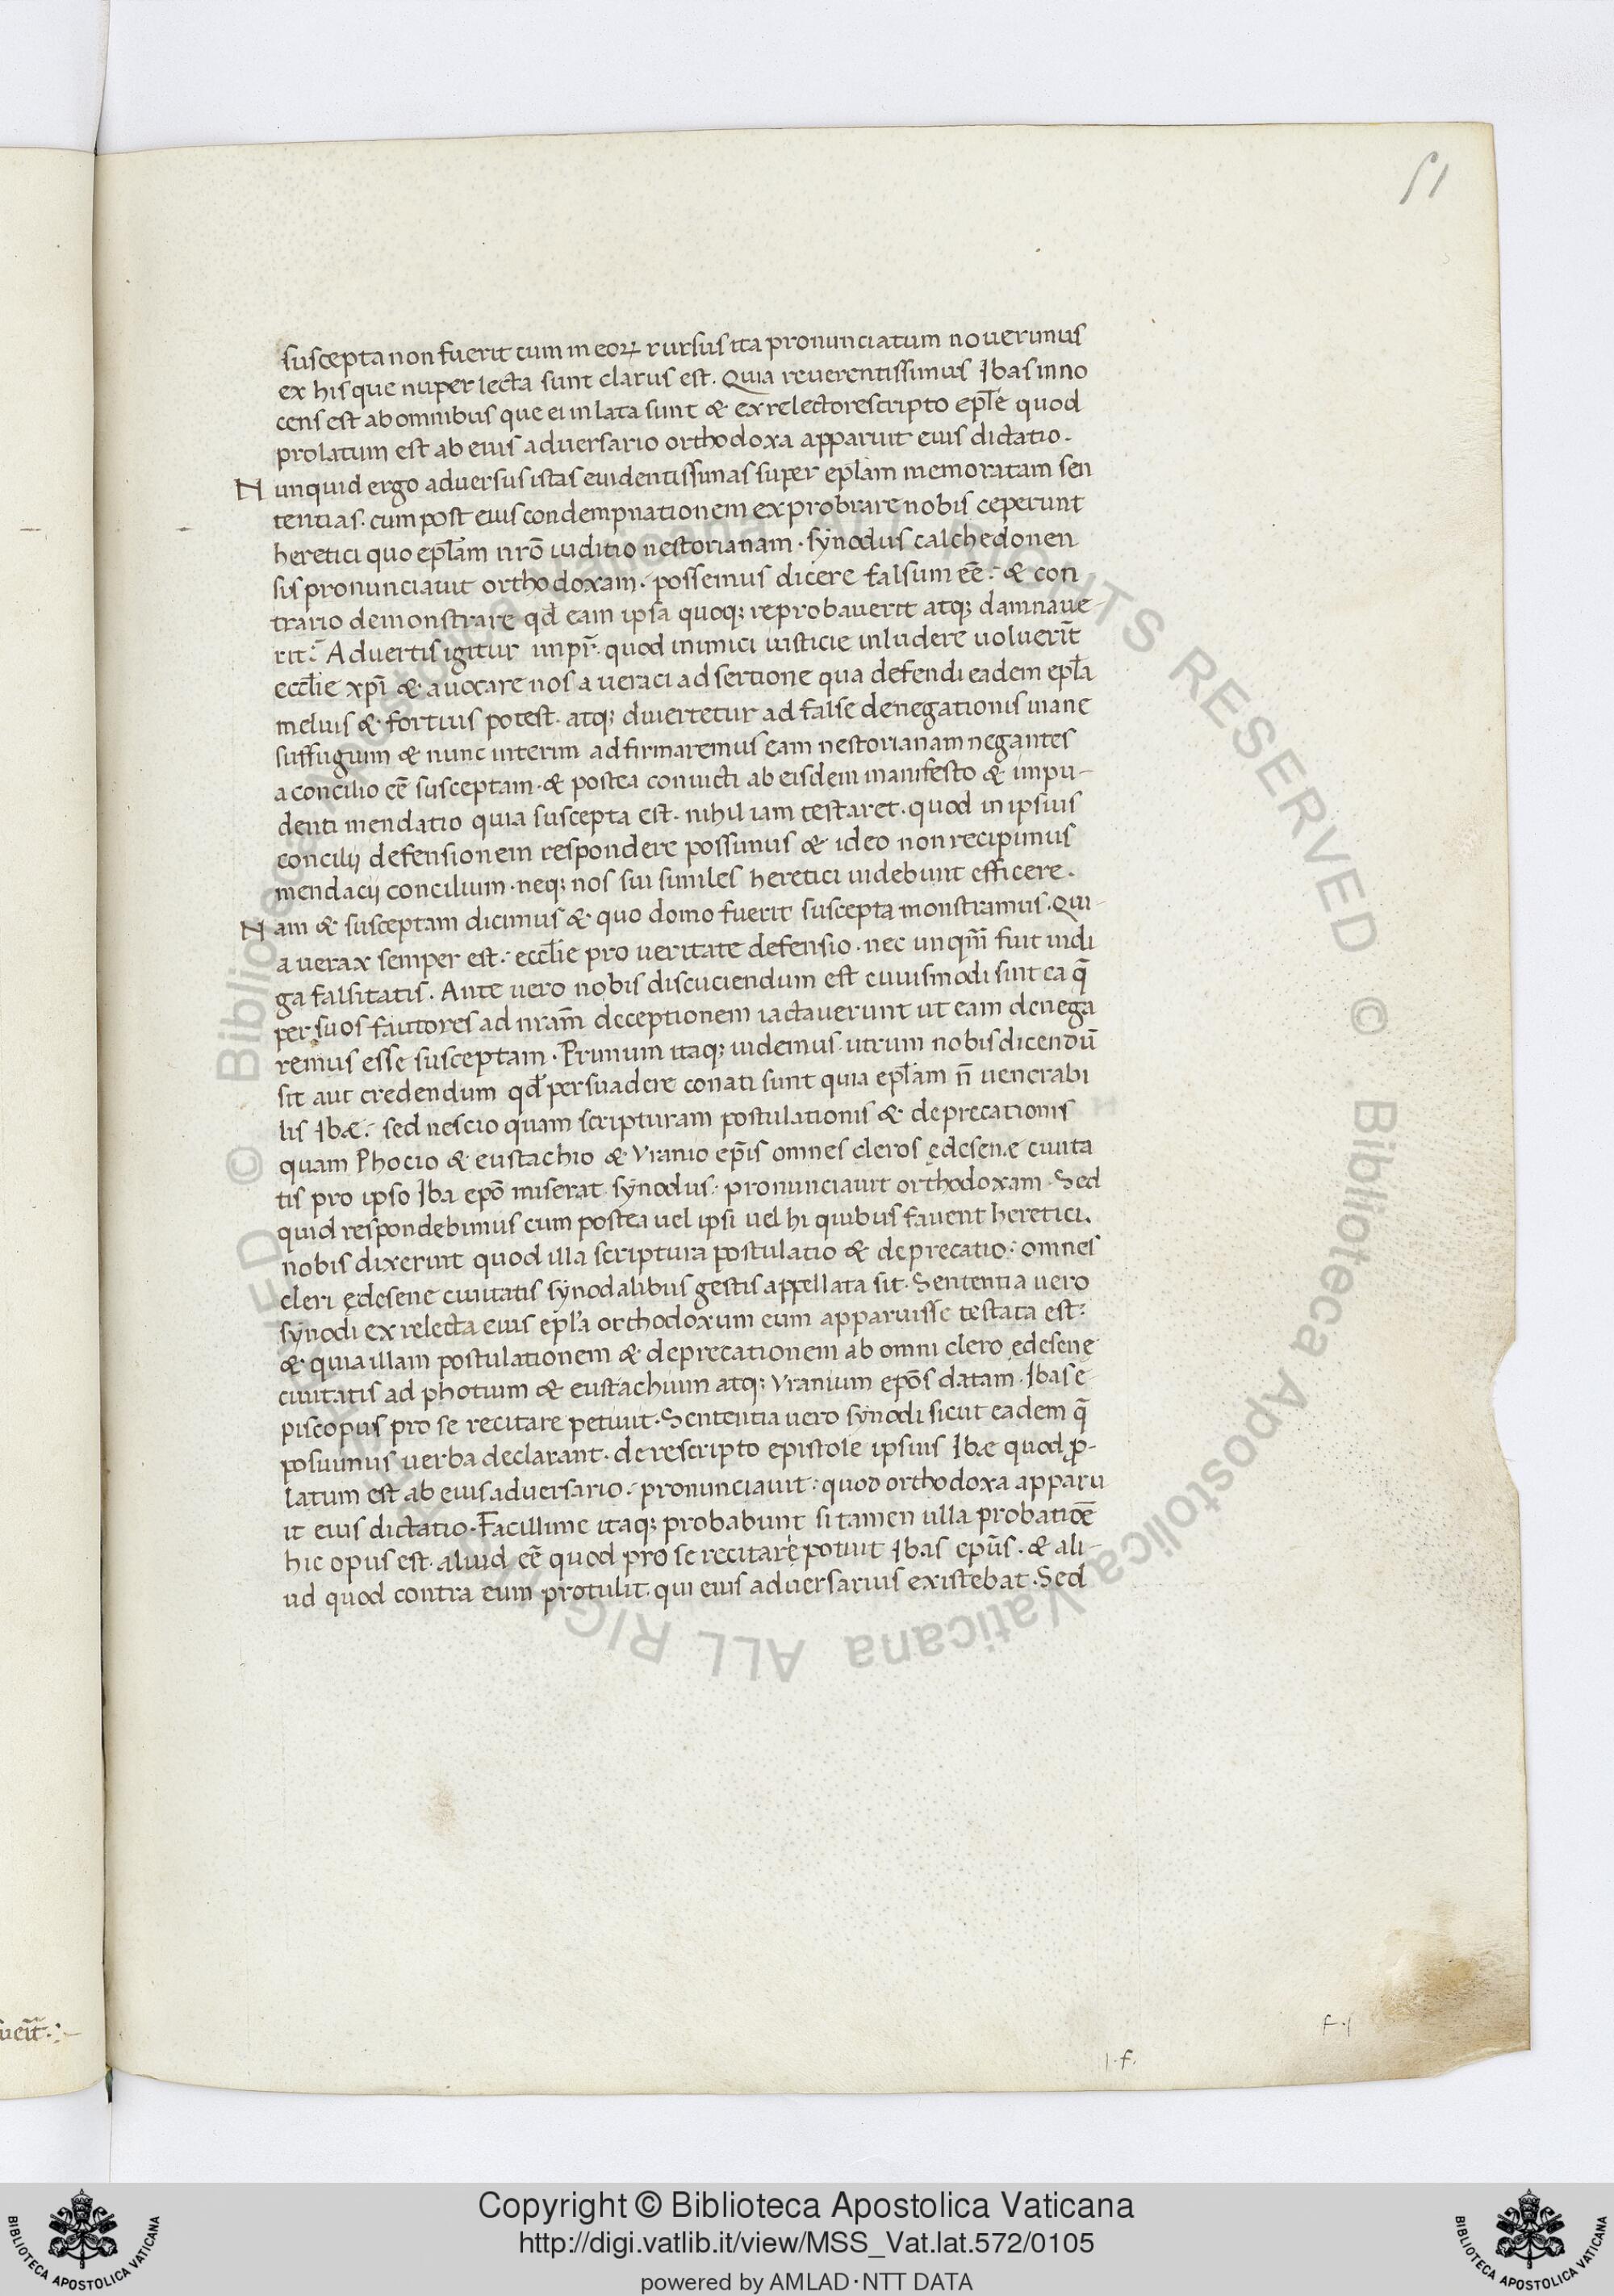 51
suscepta non fuerit cum in eoꝝ rursus ita pronunciatum noverimus
ex his que nuper lecta sunt clarus est. Quia reverentissimus Ibas inno
cens est ab omnibus que ei inlata sunt & ex relecto rescripto epl̃e quod
prolatum est ab eius adversario orthodoxa apparuit eius dictatio.
Nunquid ergo adversus istas evidentissimas super epl̃am memoratam sen
tentias. cum post eius condempnationem exprobrare nobis ceperunt
heretici quo epl̃am nr̃o iuditio nestorianam. synodus calchedonen
sis pronunciavit orthodoxam. possemus dicere falsum eẽ. & con
trario demonstrare qđ eam ipsa quoqꝫ reprobaverit atqꝫ damnave-
rit. Advertis igitur impr̃. quod inimici iusticie inludere voluerĩt
eccl̃ie xp̃i & avocare nos a veraci adsertione qua defendi eadem epl̃a
melius & fortius potest. atqꝫ divertetur ad false denegationis inane
suffugium & nunc interim adfirmaremus eam nestorianam negantes
a concilio eẽ susceptam. & postea convicti ab eisdem manifesto & impu-
denti mendatio quia suscepta est. nihil iam testaret. quod in ipsius
concilij defensionem respondere possimus & ideo non recipimus
mendacij concilium. neqꝫ nos sui similes heretici videbunt efficere.
Nam & susceptam dicimus & quo domo fuerit suscepta monstramus. Qui-
a verax semper est. eccl̃ie pro veritate defensio. nec unqm̃ fuit indi
ga falsitatis. Ante vero nobis discuciendum est cuiusmodi sint ea q̃
per suos fautores ad nr̃am deceptionem iactaverunt ut eam denega
remus esse susceptam. Primum itaqꝫ videmus. utrum nobis dicendũ
sit aut credendum qđ persuadere conati sunt quia epl̃am ñ venerabi
lis Ibæ. sed nescio quam scripturam postulationis & deprecationis
quam Phocio & eustachio & Vranio ep̃is omnes cleros ędesene civita
tis pro ipso Iba epõ miserat. synodus. pronunciavit orthodoxam. Sed
quid respondebimus cum postea vel ipsi vel hi quibus favent heretici.
nobis dixerint quod illa scriptura postulatio & deprecatio. omnes
cleri ędesene civitatis synodalibus gestis appellata sit. Sententia vero
synodi ex relecta eius epl̃a orthodoxum eum apparuisse testata est.
& quia illam postulationem & deprecationem ab omni clero ędesenę
civitatis ad photium & eustachium atqꝫ Vranium epõs datam. Ibas e-
piscopus pro se recitare petivit. Sententia vero synodi sicut eadem q̃
posuimus verba declarant. de rescripto epistole ipsius Ibæ quod ꝓ-
latum est ab eius adversario. pronunciavit. quod orthodoxa apparu
it eius dictatio. Facillime itaqꝫ probabunt si tamen ulla probatiõe
hic opus est. aliud eẽ quod pro se recitare potuit Ibas epũs. & ali-
ud quod contra eum protulit. qui eius adversarius existebat. Sed
f. 1
1. f.
Copyright © Biblioteca Apostolica Vaticana
http://digi.vatlib.it/view/MSS_Vat.lat.572/0105
powered by AMLAD·NTT DATA
BIBLIOTECA APOSTOLICA VATICANA
BIBLIOTECA APOSTOLICA VATICANA
© Biblioteca Apostolica Vaticana ALL RIGHTS RESERVED © Biblioteca Apostolica Vaticana ALL RIGHTS RESERVED